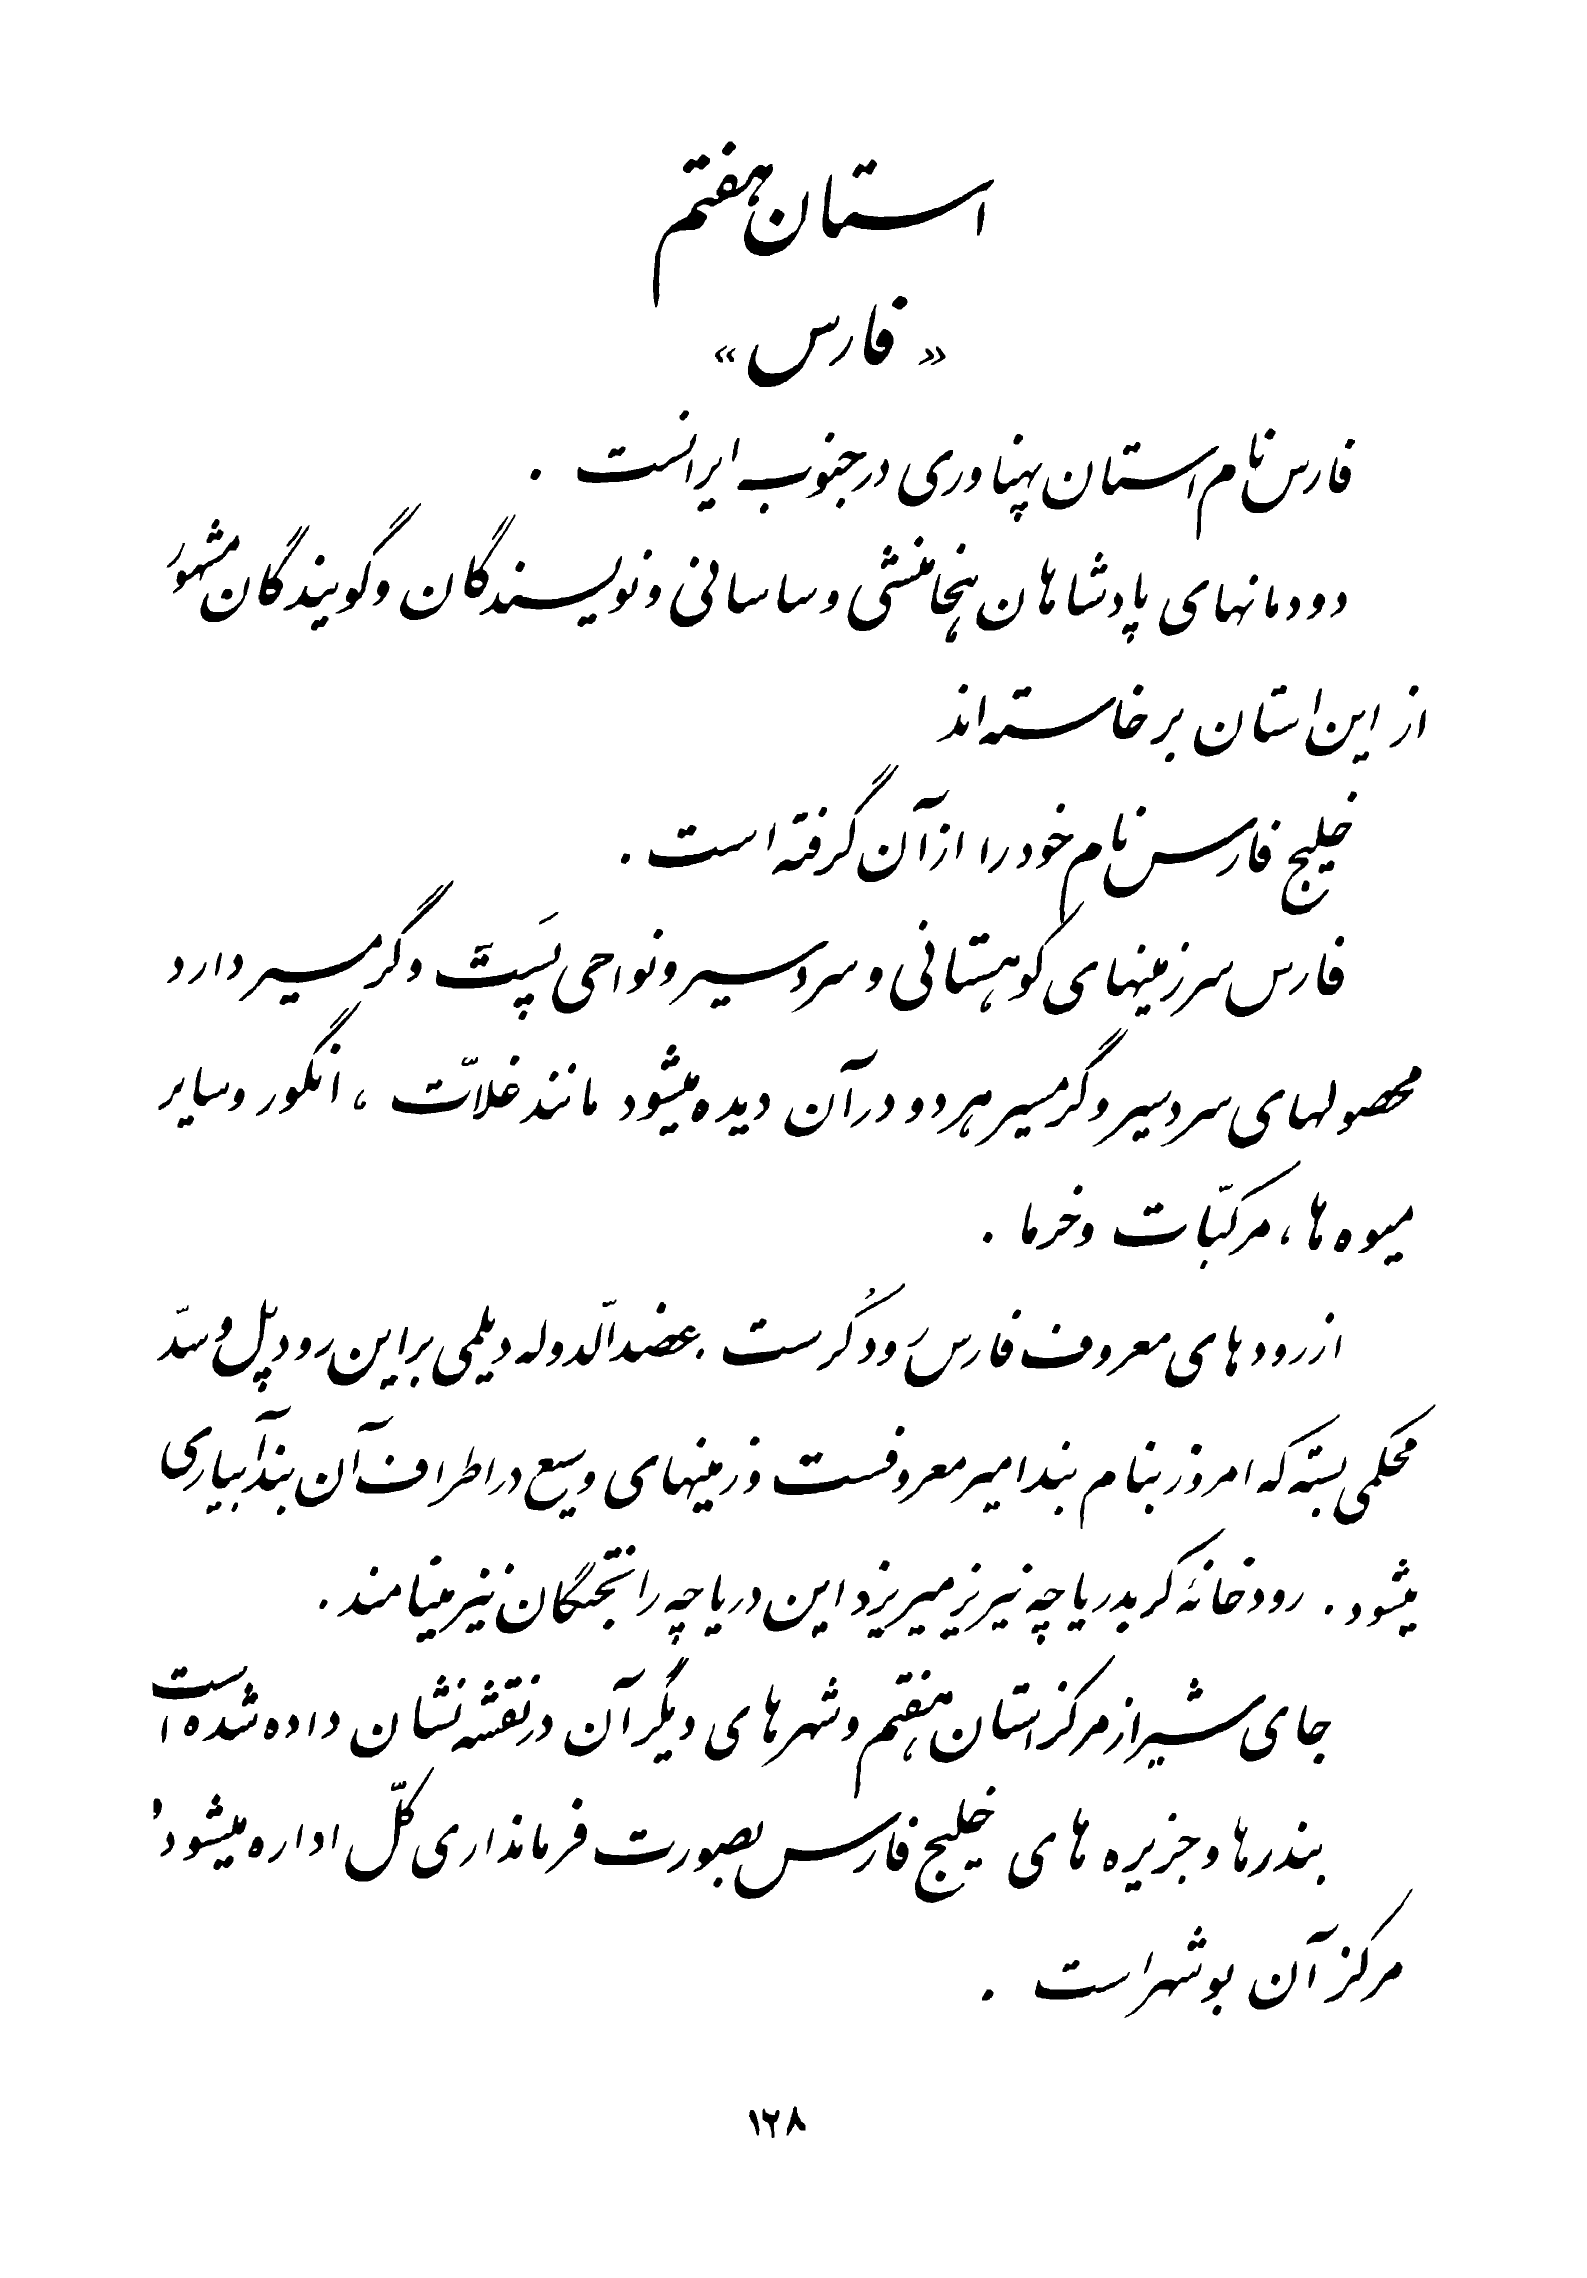 استان هفتم
« فارس »
فارس نام استان پهناوری در جنوب ایرانست .
دودمانهای پادشاهان هخامنشی و ساسانی و نویسندگان و گویندگان مشهور
از این استان برخاسته‌اند
خلیج فارس نام خود را از آن گرفته است .
فارس سرزمینهای کوهستانی و سردسیر و نواحی پَست و گرمسیر دارد
محصولهای سردسیر و گرمسیر هر دو در آن دیده میشود مانند غلاّت ، انگور و سایر
میوه ها ، مرکبّات و خرما .
از رودهای معروف فارس رود کُر ست . عضدالّدوله دیلمی بر این رود پل و سدّ
محکمی بسته که امروز بنام بند امیر معروفست و زمینهای وسیع در اطراف آن بند آبیاری
میشود . رودخانهٔ کر بدریاچه نیریز میریزد این دریاچه را بختگان نیز مینامند .
جای شیراز مرکز استان هفتم و شهرهای دیگر آن در نقشه نشان داده شده است
بندرها و جزیره های خلیج فارس بصورت فرمانداری کلّ اداره میشود و
مرکز آن بوشهر است .
۱۲۸